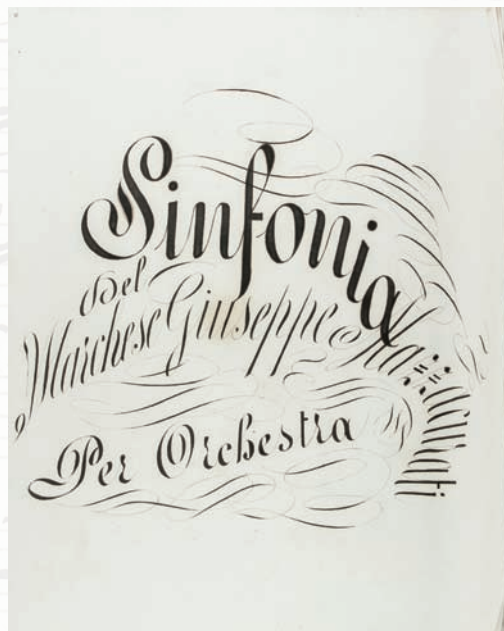 Sinfonia
Del
Marchese Giuseppe
Per Orchestra